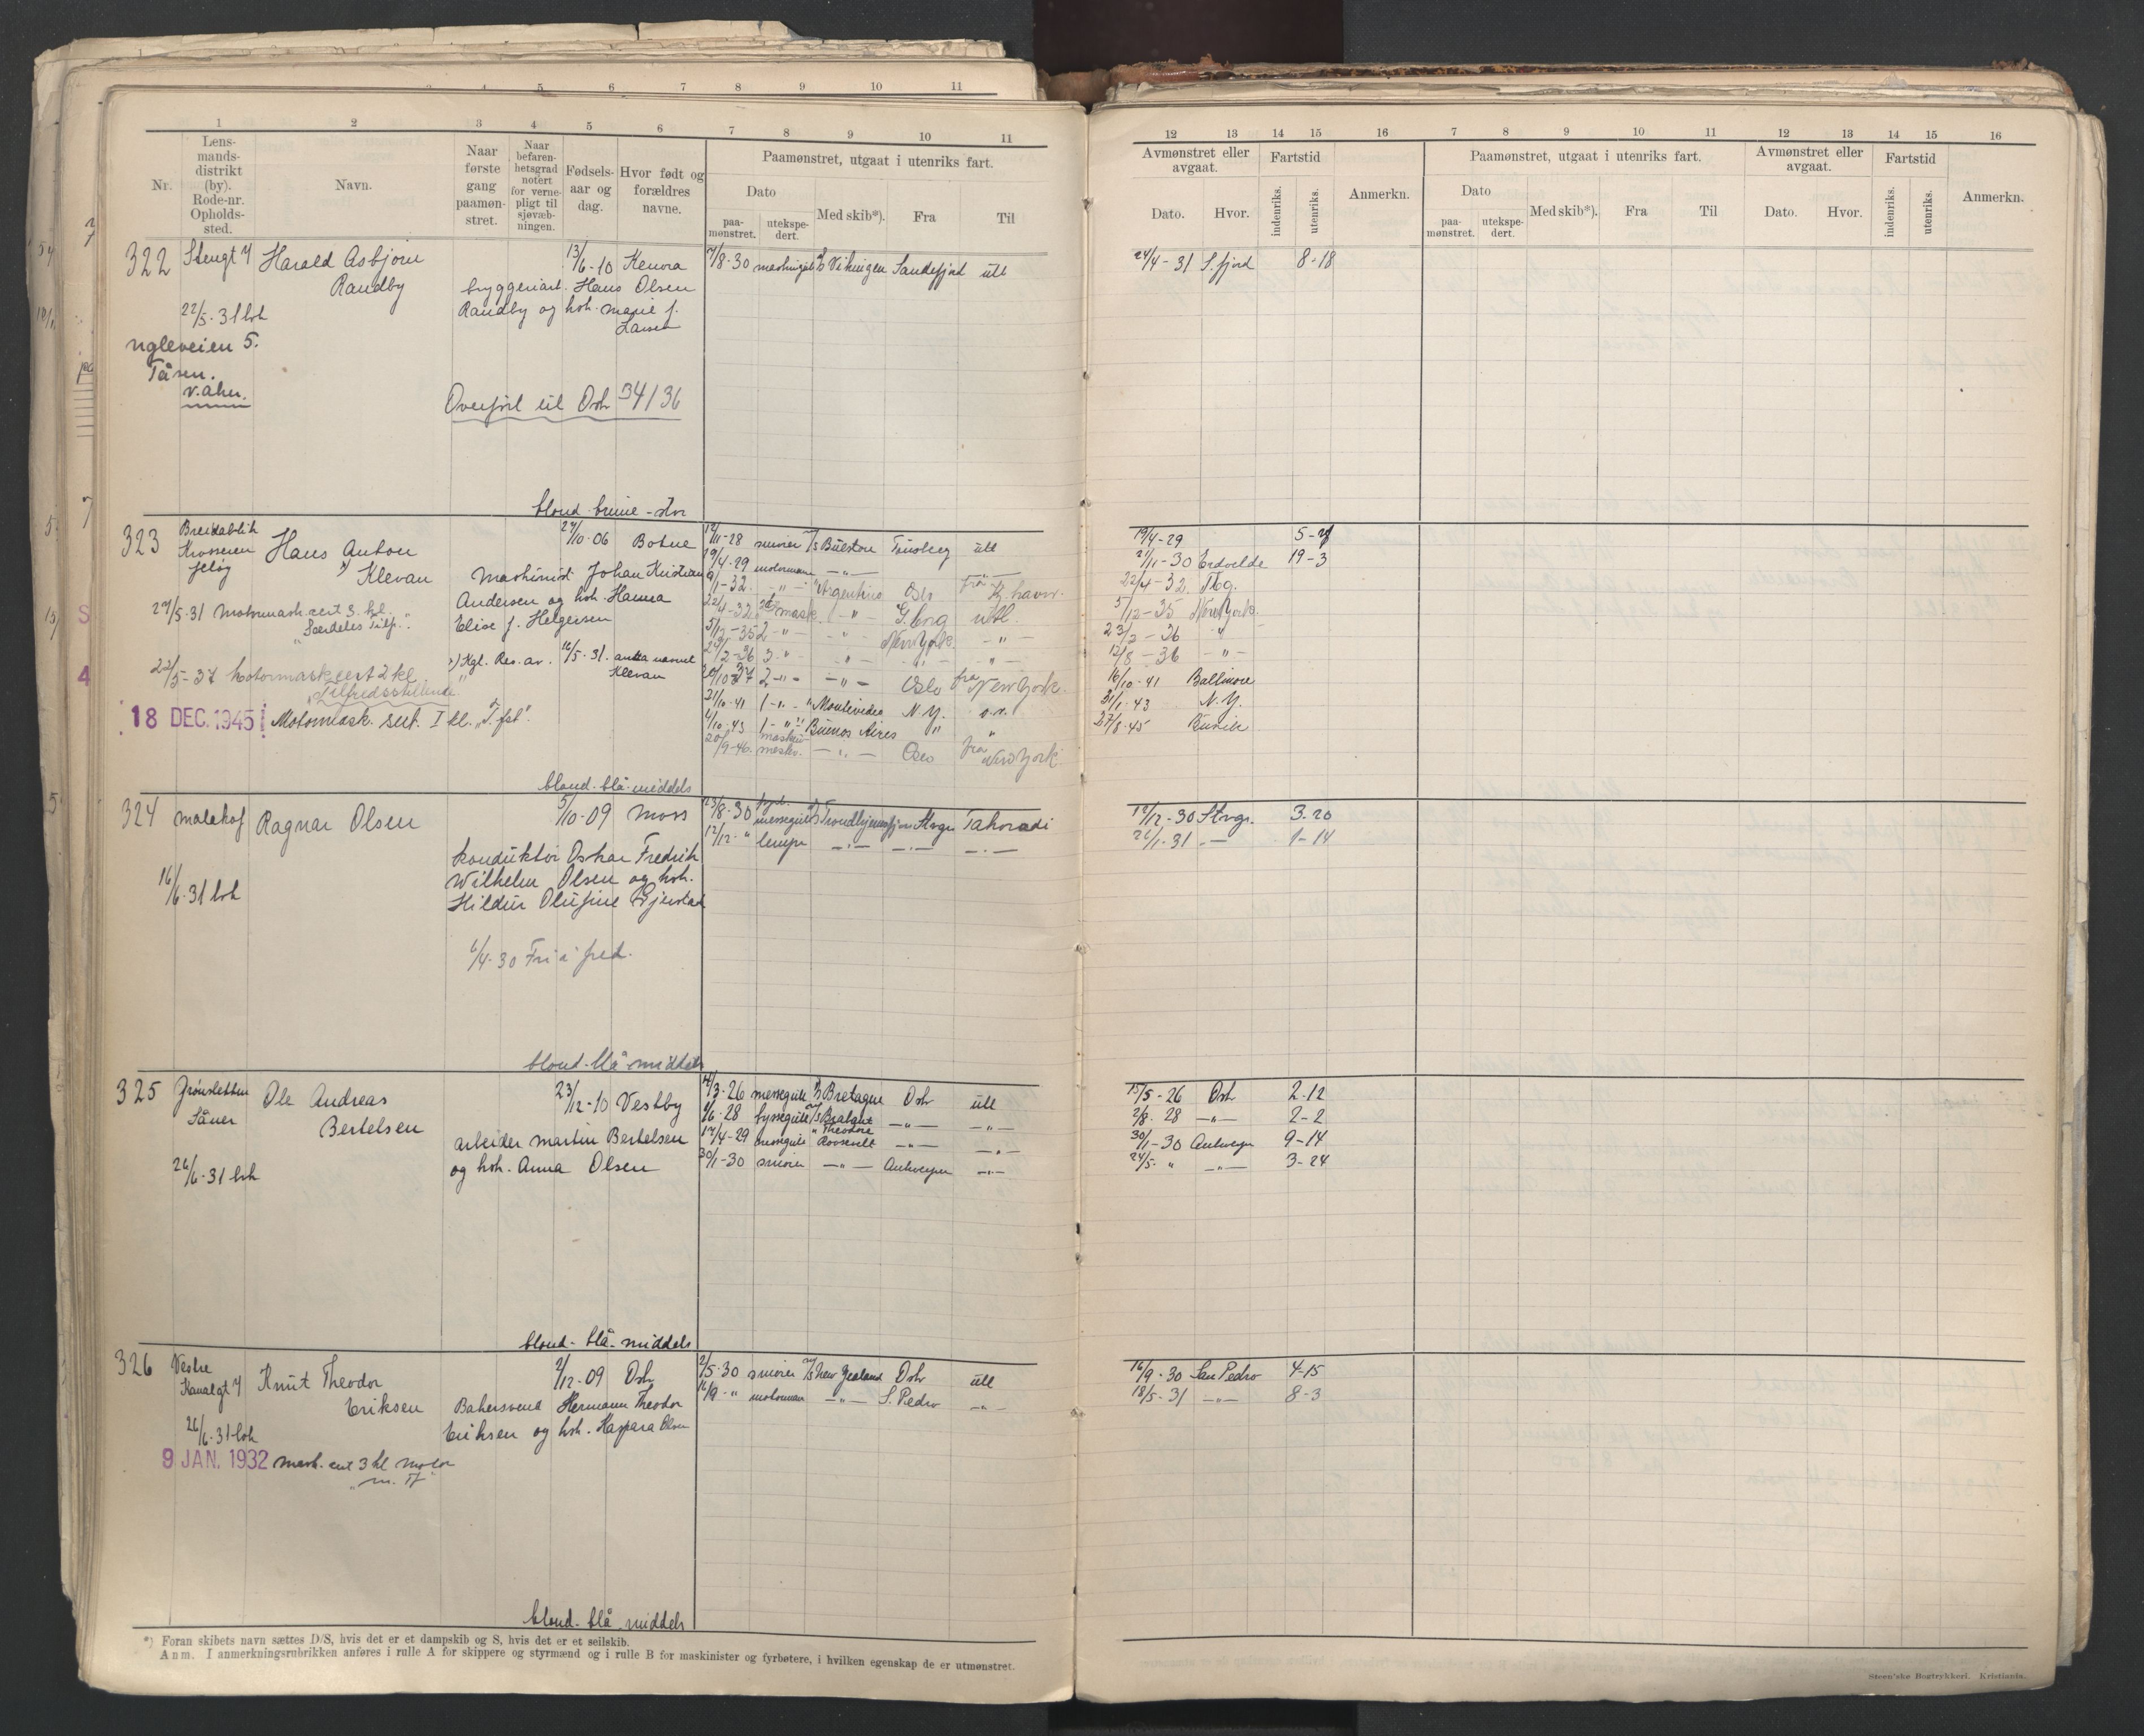 1 2 3 4 5 6 7 8 9 10 11
Nr.
Lensmandsdistrikt (by). Rode-nr. Opholdssted.
Navn.
Naar første gang paamønstret.
Naar befarenhetsgrad notert for vernepligt til sjøvæbningen.
Fødselsaar og dag.
Hvor født og forældres navne.
Paamønstret, utgaat i utenriks fart.
Dato
paamønstret.
utekspedert.
Med skib*).
Fra
Til
12 13 14 15 16 7 8 9 10 11 12 13 14 15 16
Avmønstret eller avgaat.
Dato.
Hvor.
Fartstid
indenriks.
utenriks.
Anmerkn.
Paamønstret, utgaat i utenriks fart.
Dato
paamønstret.
utekspedert.
Med skib*).
Fra
Til
Avmønstret eller avgaat.
Dato.
Hvor.
Fartstid
indenriks.
utenriks.
Anmerkn.
322 Stengt 4 Harald Asbjørn 13/6-10 Kenora 7/8-30 Vikingen Sandefjord utl 24/4-31 S.fjord 8-18
Randby bryggeriarb. Hans Olsen
22/5-31 Randby og hh. Marie f. Larsen
Ugleveien 5.
Tåsen.
V. Aker.
Overført til Osl. 34/36
blond-brune-stor
323 Breidablik Hans Anton 27/10-06 Botne 12/11-28 smører Tønsberg utl 19/4-29
Krosseren Jeløy 19/4-29 motormann -"- 21/11-30 Ertvelde 19-3
x) Klevan Maskinist Johan Kristian 9/1-32 -"- Argentina Oslo fra K.havn. 22/4-32 Tbg.
Andersen og hh. Hanna 22/4-32 mask. -"- utl. 5/12-35 New York
27/5-31 Motormask.cert 3. kl. Elise f. Helgesen 5/12-35 2 -"- New York -"- 23/2-36 -"-
"Særdeles Tilf." 2-36 3 -"- -"- 12/8-36 -"-
x) Kgl. Res. av 16/5-31. antta navnet Klevan
22/5-37 Motormaskcert 2 kl "Tilfredsstillende" 2 -"- Oslo fra New York. 16/10-41 Baltimore
18 DEC. 1945 Motormask. sert. I kl. "T.fst". 21/10-41 1 -"- Montevideo N.Y. o.v. 21/1-43 N.Y.
1/10-43 1 -"- Buenos Aires " " 27/8-45
20/9-46 -"- Oslo fra New York
blond-blå-middels
324 Malakof Ragnar Olsen 5/10-09 Moss 23/8-30 messegutt Trondhjemsfjord Stvgr Takoradi 12/12-30 Stvgr. 3-20
12/12 " lemper -"- -"- -"- 26/1-31 -"- 1-14
konduktør Oskar Fredrik
Wilhelm Olsen og hh.
16/6-31 Hildur Olufine Gjerstad
6/4-30 Fri i fred.
blond-blå-middels
325 Grønsletten Ole Andreas 23/12-10 Vestby 3-26 messegutt Bretagne Osl. utl 15/5-26 Osl. 2-12
Såner Bertelsen 6-28 byssegutt Brabant -"- -"- 2/8-28 -"- 2-2
arbeider Martin Bertelsen 17/4-29 messegutt " Theodore Roosevelt -"- -"- 30/1-30 Antwerpn 9-14
26/6-31 og hh. Anna Olsen 30/1-30 smører -"- Antwerpen -"- 24/5 " -"- 3-24
blond-blå-middels
326 Vestre Kanalgt 4 Knut Theodor 2/12-09 Osl. 2/5-30 smører New Zealand Osl. utl 16/9-30 San Pedro 4-15
Eriksen Bakersvend Hermann Theodor 16/9-" motorman -"- S. Pedro -"- 18/5-31 -"- 8-3
26/6-31 Eriksen og hh. Kaspara Olsen
9 JAN. 1932 mask. cert 3 kl motor
"m. Tf"
blond-blå-middels
*) Foran skibets navn sættes D/S, hvis det er et dampskib og S, hvis det er et seilskib.
Anm. I anmerkningsrubrikken anføres i rulle A for skippere og styrmænd og i rulle B for maskinister og fyrbøtere, i hvilken egenskap de er utmønstret.
Steen'ske Bogtrykkeri. Kristiania.